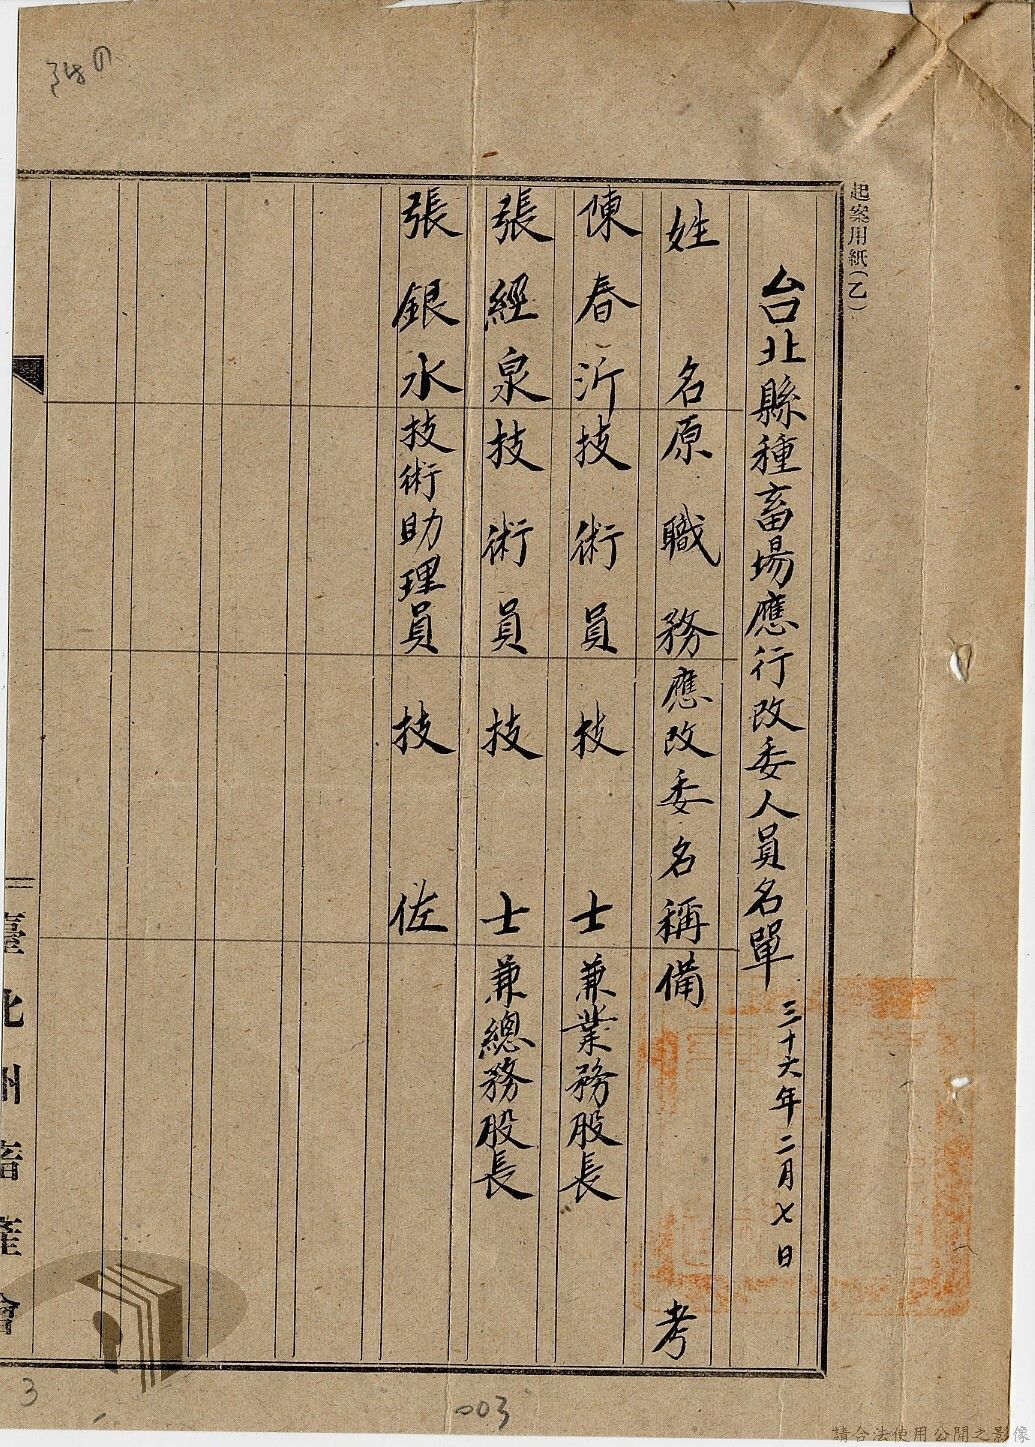 起案用紙(乙)
台北縣種畜場應行改委人員名單 三十六年二月七日
姓名 原職務 應改委名稱 備考
陳春沂 技術員 技士 兼業務股長
張經泉 技術員 技士 兼總務股長
張銀水 技術助理員 技佐
臺北州畜產會
3
003
請合法使用公開之影像